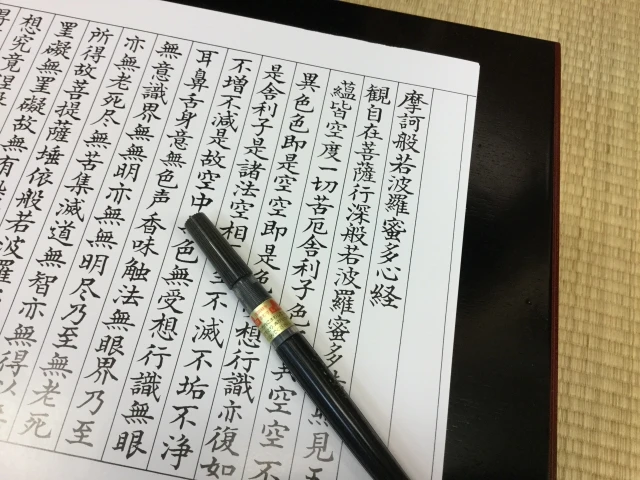 摩訶般若波羅蜜多心経
観自在菩薩行深般若波羅蜜多時照見五
蘊皆空度一切苦厄舎利子色異空空不
異色色即是空空即是色想行識亦復如
是舎利子是諸法空相不滅不垢不浄
不増不減是故空中色無受想行識無眼
耳鼻舌身意無色声香味触法無眼界乃至
無意識界無無明亦無無明尽乃至無老死
亦無老死尽無苦集滅道無智亦無得以
所得故菩提薩埵依般若波羅
罣礙無罣礙故無有
想究竟涅
得